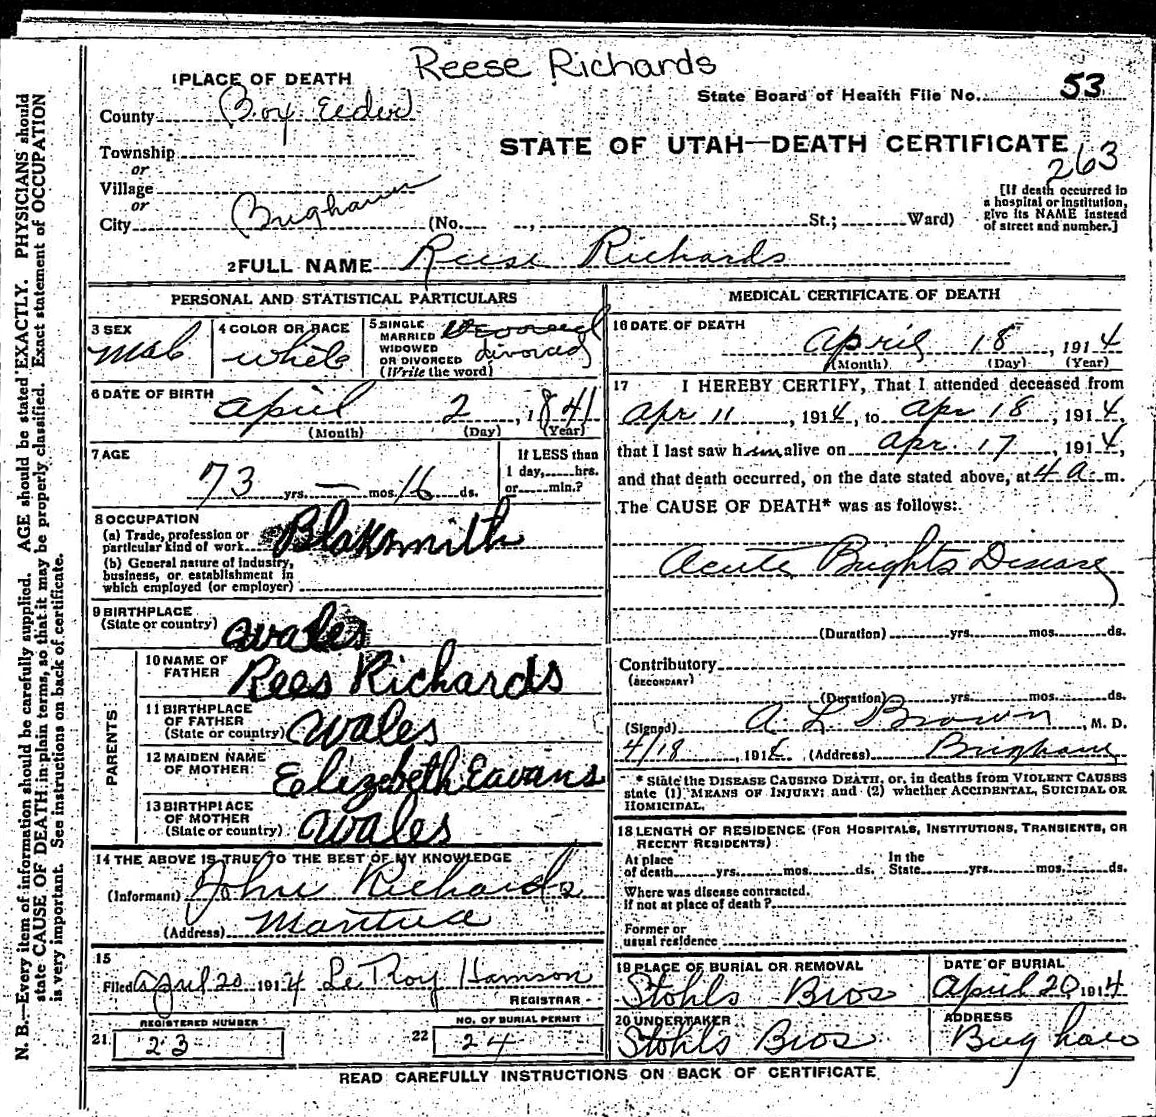 Reese Richards
1 PLACE OF DEATH
State Board of Health File No. 53
County Box Elder
STATE OF UTAH—DEATH CERTIFICATE
263
Township
or
Village
or
City Brigham (No. , St.; Ward)
[If death occurred in
a hospital or institution,
give its NAME instead
of street and number.]
2 FULL NAME Reese Richards
PERSONAL AND STATISTICAL PARTICULARS
3 SEX
Male
4 COLOR OR RACE
white
5 SINGLE
MARRIED
WIDOWED
OR DIVORCED
(Write the word)
divorced
6 DATE OF BIRTH
April 2, 1841
(Month) (Day) (Year)
7 AGE
73 yrs. — mos. 16 ds.
If LESS than
1 day, hrs.
or min.?
8 OCCUPATION
(a) Trade, profession or
particular kind of work Blaksmith
(b) General nature of industry,
business, or establishment in
which employed (or employer)
9 BIRTHPLACE
(State or country) Wales
PARENTS
10 NAME OF
FATHER Rees Richards
11 BIRTHPLACE
OF FATHER
(State or country) Wales
12 MAIDEN NAME
OF MOTHER Eelizabeth Eavans
13 BIRTHPLACE
OF MOTHER
(State or country) Wales
14 THE ABOVE IS TRUE TO THE BEST OF MY KNOWLEDGE
(Informant) John Richards
(Address) Mantua
15
Filed April 20 1914 LeRoy Hamson
REGISTRAR
REGISTERED NUMBER
21. 23
NO. OF BURIAL PERMIT
22 24
MEDICAL CERTIFICATE OF DEATH
16 DATE OF DEATH
April 18, 1914
(Month) (Day) (Year)
17 I HEREBY CERTIFY, That I attended deceased from
Apr 11, 1914, to Apr 18, 1914,
that I last saw him alive on Apr 17, 1914,
and that death occurred, on the date stated above, at 4 a m.
The CAUSE OF DEATH* was as follows:
Acute Brights Disease
(Duration) yrs. mos. ds.
Contributory
(SECONDARY)
(Duration) yrs. mos. ds.
(Signed) A L Brown, M. D.
4/18, 1914 (Address) Brigham
* State the DISEASE CAUSING DEATH, or, in deaths from VIOLENT CAUSES
state (1) MEANS OF INJURY; and (2) whether ACCIDENTAL, SUICIDAL OR
HOMICIDAL.
18 LENGTH OF RESIDENCE (FOR HOSPITALS, INSTITUTIONS, TRANSIENTS, OR
RECENT RESIDENTS)
At place
of death yrs. mos. ds.
In the
State yrs. mos. ds.
Where was disease contracted.
If not at place of death?
Former or
usual residence
19 PLACE OF BURIAL OR REMOVAL
Stohls Bros
DATE OF BURIAL
April 20, 1914
20 UNDERTAKER
Stohls Bros
ADDRESS
Brigham
READ CAREFULLY INSTRUCTIONS ON BACK OF CERTIFICATE
N. B.—Every item of information should be carefully supplied. AGE should be stated EXACTLY. PHYSICIANS should
state CAUSE OF DEATH in plain terms, so that it may be properly classified. Exact statement of OCCUPATION
is very important. See instructions on back of certificate.